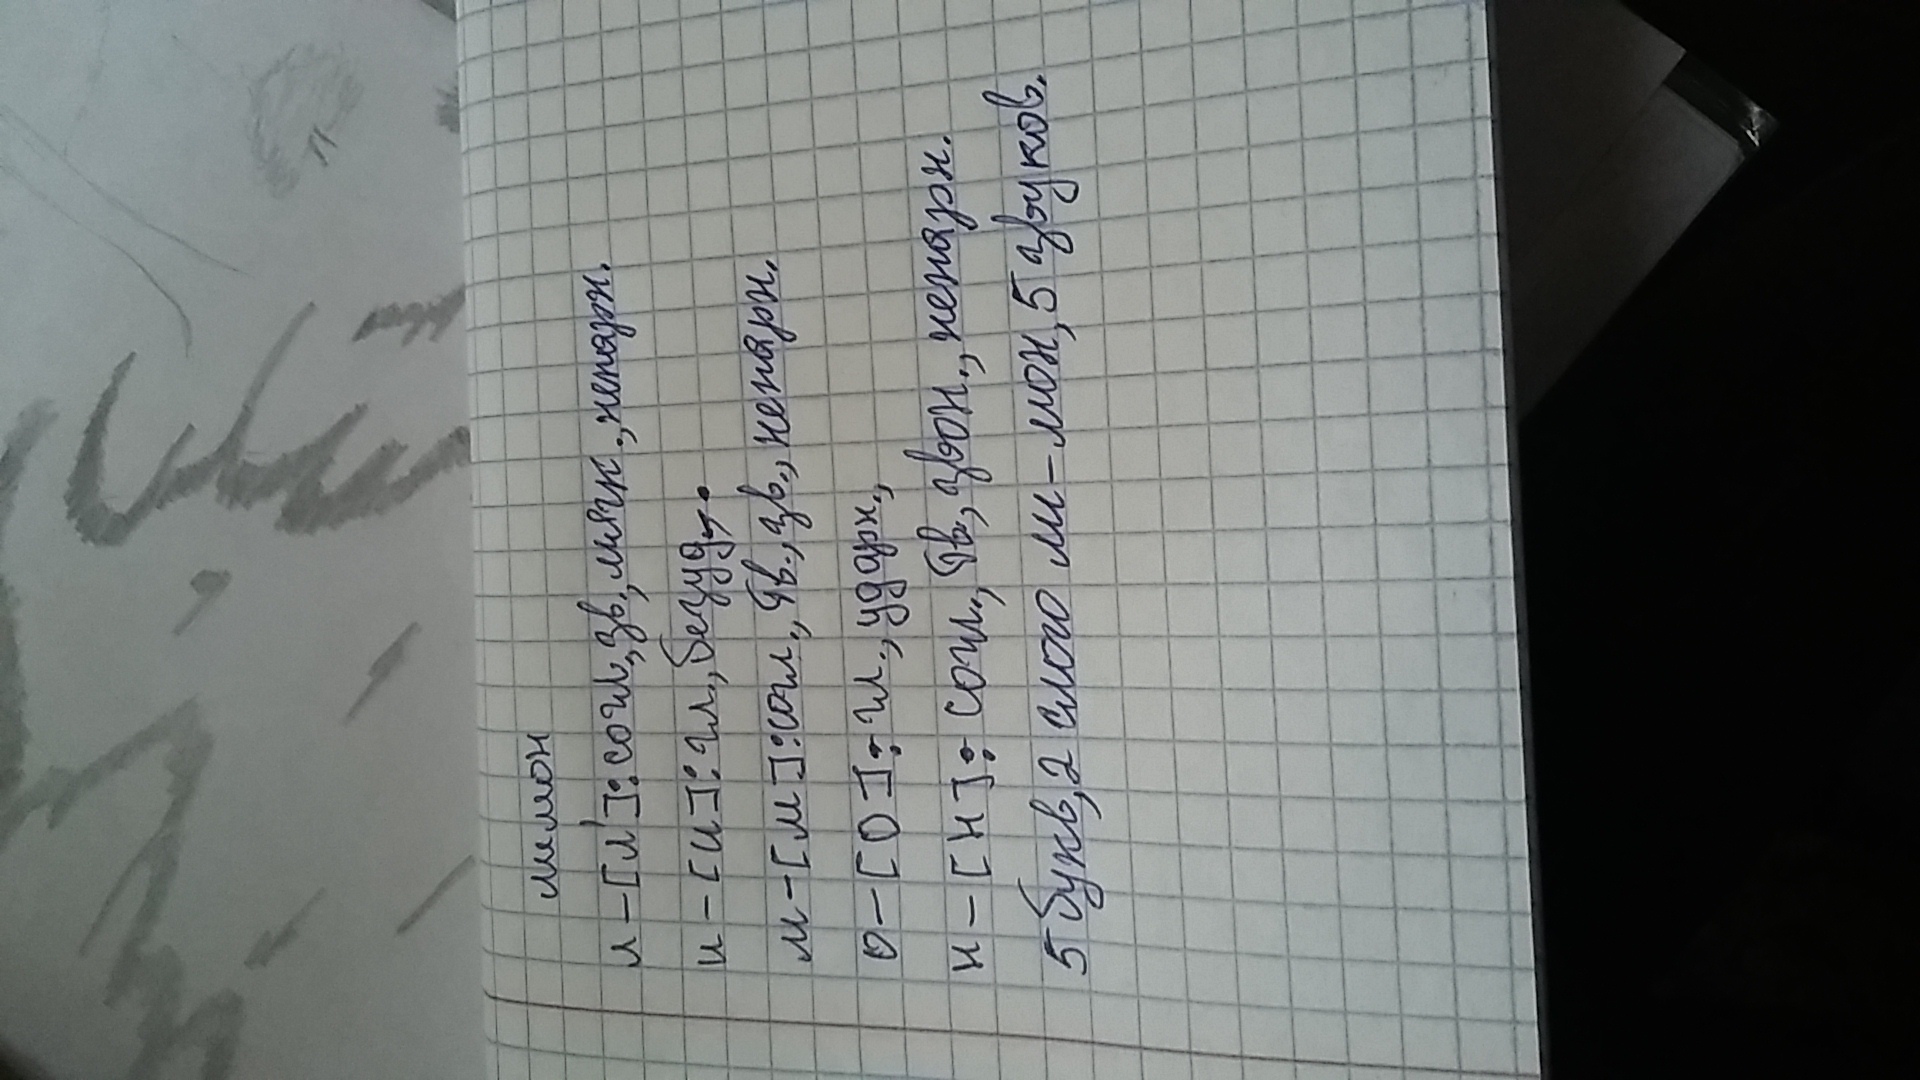 лимон
л-[л']:согл,зв.,мягк.,непарн.
и-[и]:гл.,безуд,.
м-[м]:согл.,тв.,зв.,непарн.
о-[о]:гл.,ударн.,
н-[н]:согл.,тв.,звон.,непарн.
5 букв,2 слога ли-мон,5 звуков.